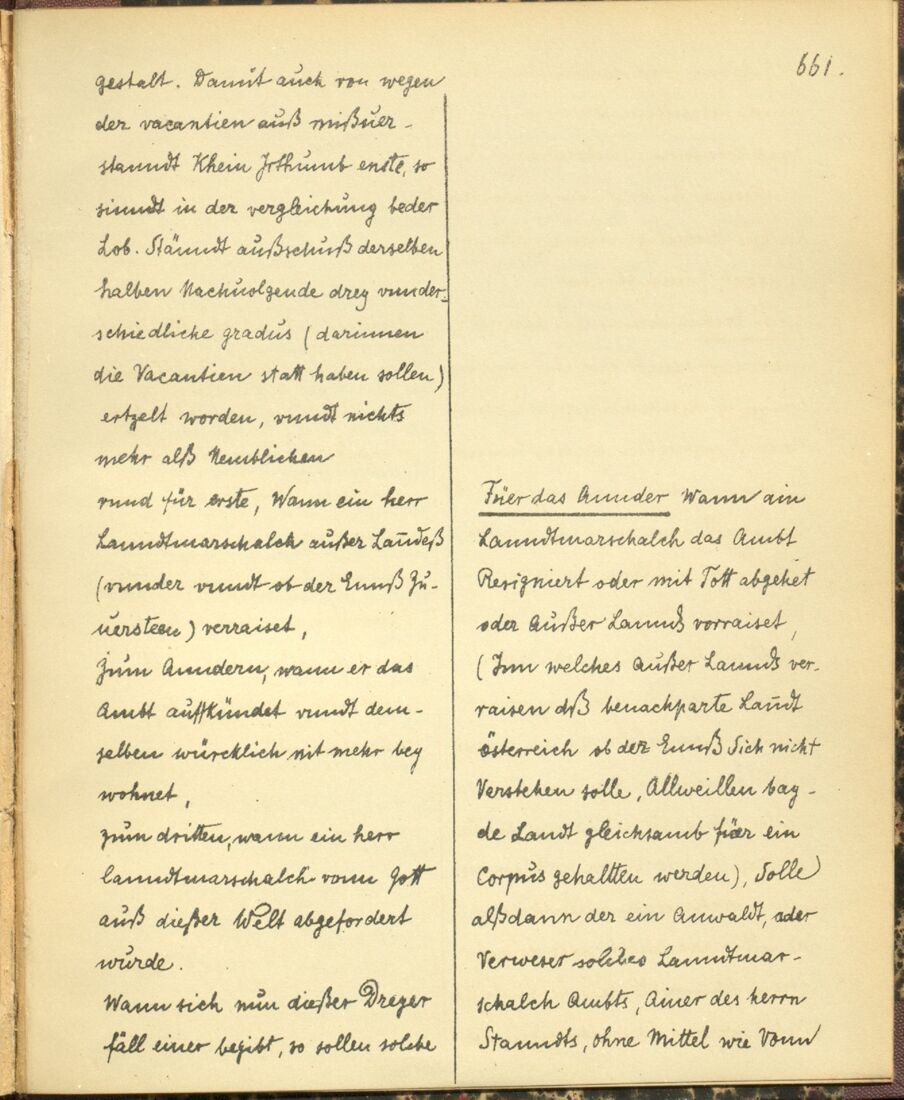 661.
gestalt. Damit auch von wegen
der vacantien auß mißuer-
stanndt Khein Jrthumb enste, so
sinndt in der vergleichung beder
Lob. Stänndt außschuß derselben
halben Nachuolgende drey vunder-
schiedliche gradus (darinnen
die Vacantien statt haben sollen)
ertzelt worden, vundt nichts
mehr alß Nemblichen
vund für erste, Wann ein herr
Lanndtmarschalch außer Landeß
(vunder vundt ob der Ennß Zu-
uersteen) verraiset,
Zum Anndern, wann er das
Ambt auffkündet vundt dem-
selben würcklich nit mehr bey
wohnet,
zum dritten, wann ein herr
lanndtmarschalch vonn Gott
auß dießer Welt abgefordert
würde.
Wann sich nun dießer Dreyer
fäll einer begibt, so sollen solche
Füer das Annder Wann ain
Lanndtmarschalch das Ambt
Resigniert oder mit Tott abgehet
oder Außer Lannds vorraiset,
(Inn welches Außer Lannds ver-
raisen dß benachparte Landt
österreich ob der Ennß Sich nicht
Verstehen solle, Allweillen bay-
de Landt gleichsamb füer ein
Corpus gehaltten werden), Solle
alßdann der ein Anwaldt, oder
Verweser solches Lanndtmar-
schalch Ambts, Ainer des herrn
Stanndts, ohne Mittel wie Vonn